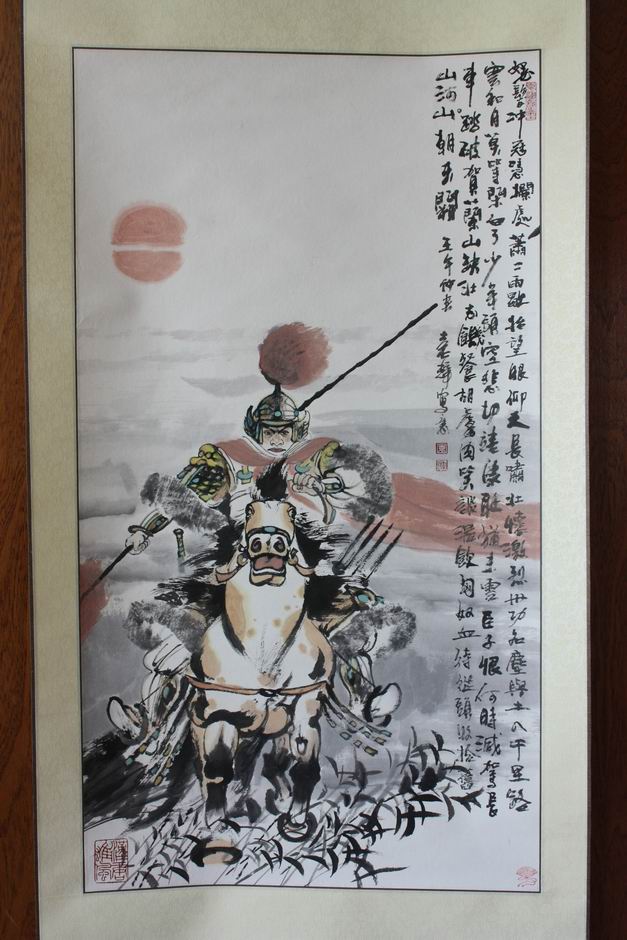 怒髮冲冠凭欄處蕭〻雨歇抬望眼仰天長嘯壯懷激烈卅功名塵與土八千里路
雲和月莫等閑白了少年頭空悲切靖康耻猶未雪臣子恨何時滅駕長
車踏破賀蘭山缺壯志饑餐胡虜肉笑談渴飲匈奴血待從頭收拾舊
山河山朝天闕 壬午仲春 寫意
漢唐雄風